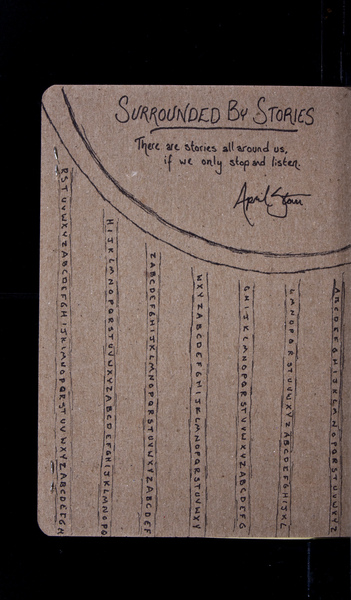 SURROUNDED BY STORIES
There are stories all around us,
if we only stop and listen.
April Starr
RSTUVWXYZABCDEFGHIJKLMNOPQRSTUVWXYZABCDEFGH
HIJKLMNOPQRSTUVWXYZABCDEFGHIJKLMNOPQ
ZABCDEFGHIJKLMNOPQRSTUVWXYZABCDEF
WXYZABCDEFGHIJKLMNOPQRSTUVWXY
GHIJKLMNOPQRSTUVWXYZABCDEFG
LMNOPQRSTUVWXYZABCDEFGHIJKL
ABCDEFGHIJKLMNOPQRSTUVWXYZ